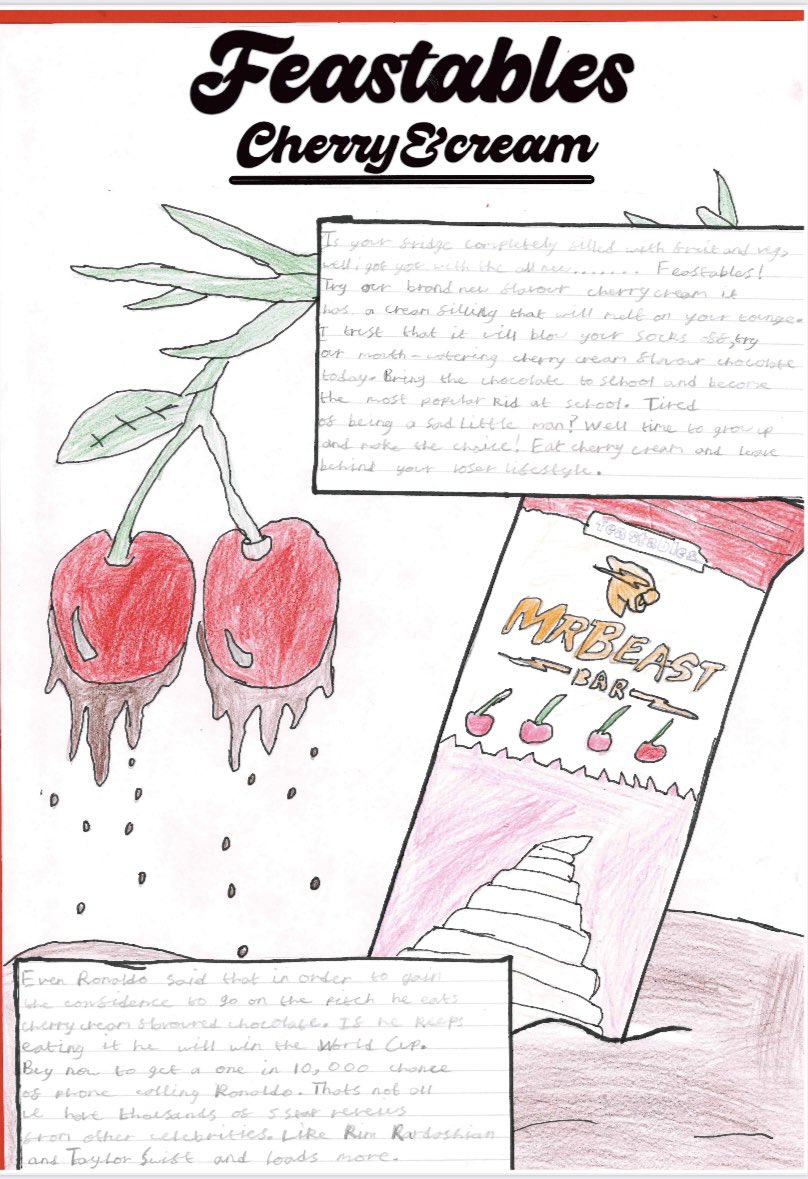 Feastables
Cherry & cream
Is your fridge completely filled with fruit and veg,
well i got yor with the all new....... Feastables!
Try our brand new flavour cherry cream it
has a cream filling that will melt on your tounge.
I trust that it will blow your socks off, try
our mouth-watering cherry cream flavour chocolate
today. Bring the chocolate to school and become
the most popular kid at school. Tired
of being a sad little man? Well time to grow up
and make the choice! Eat cherry cream and leave
behind your loser lifestyle.
feastables
MRBEAST
BAR
Even Ronaldo said that in order to gain
the confidence to go on the pitch he eats
cherry cream flavoured chocolate. If he keeps
eating it he will win the World Cup.
Buy now to get a one in 10,000 chance
of phone calling Ronaldo. Thats not all
we have thousands of 5 star reveiws
from other celebrities. Like Kim Kardashian
and Taylor Swist and loads more.